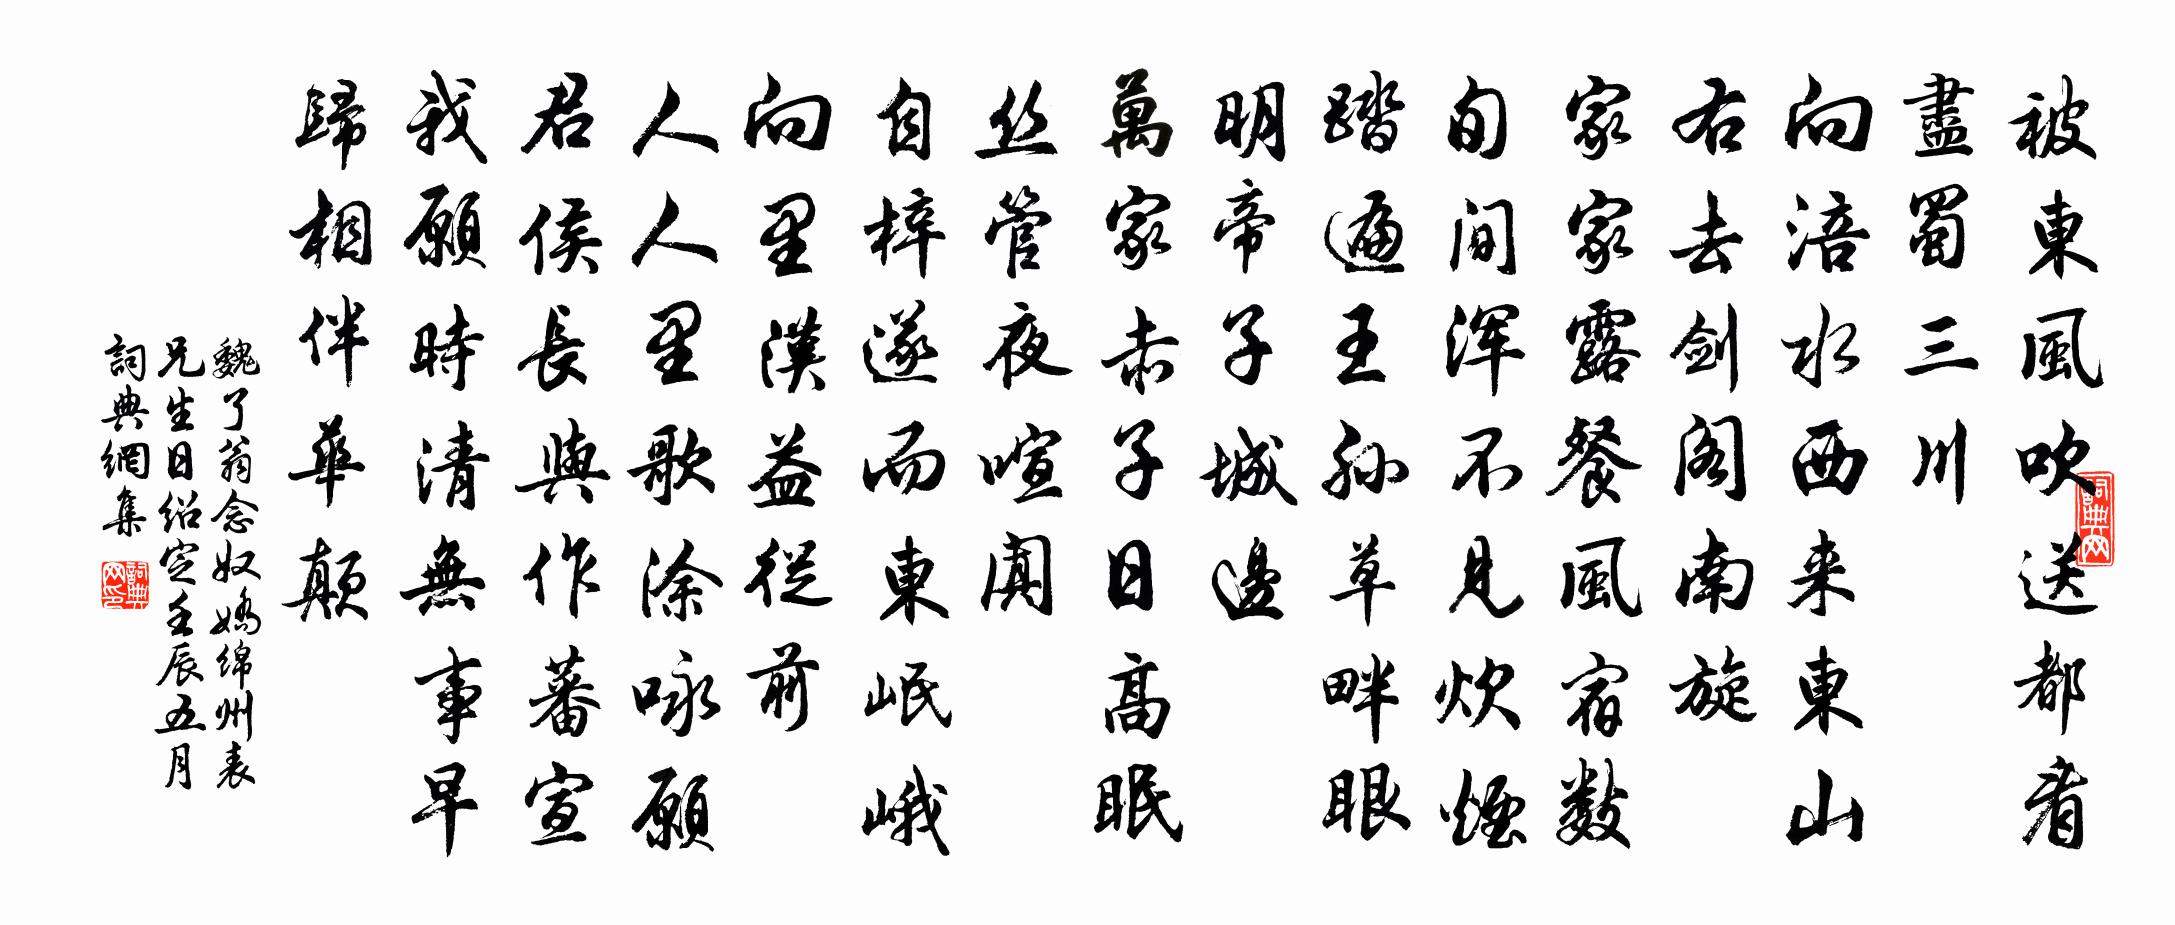 被東風吹送都看
盡蜀三川
向涪水西来東山
右去剑阁南旋
家家露餐風宿数
旬间浑不見炊煙
踏遍王孙草畔眼
明帝子城邊
萬家赤子日高眠
丝管夜喧阗
自梓遂而東岷峨
向里漢益從前
人人里歌涂咏願
君侯長與作蕃宣
我願時清無事早
歸相伴華顛
魏了翁念奴嬌绵州表
兄生日绍定壬辰五月
詞典網集
詞典网
詞典网印